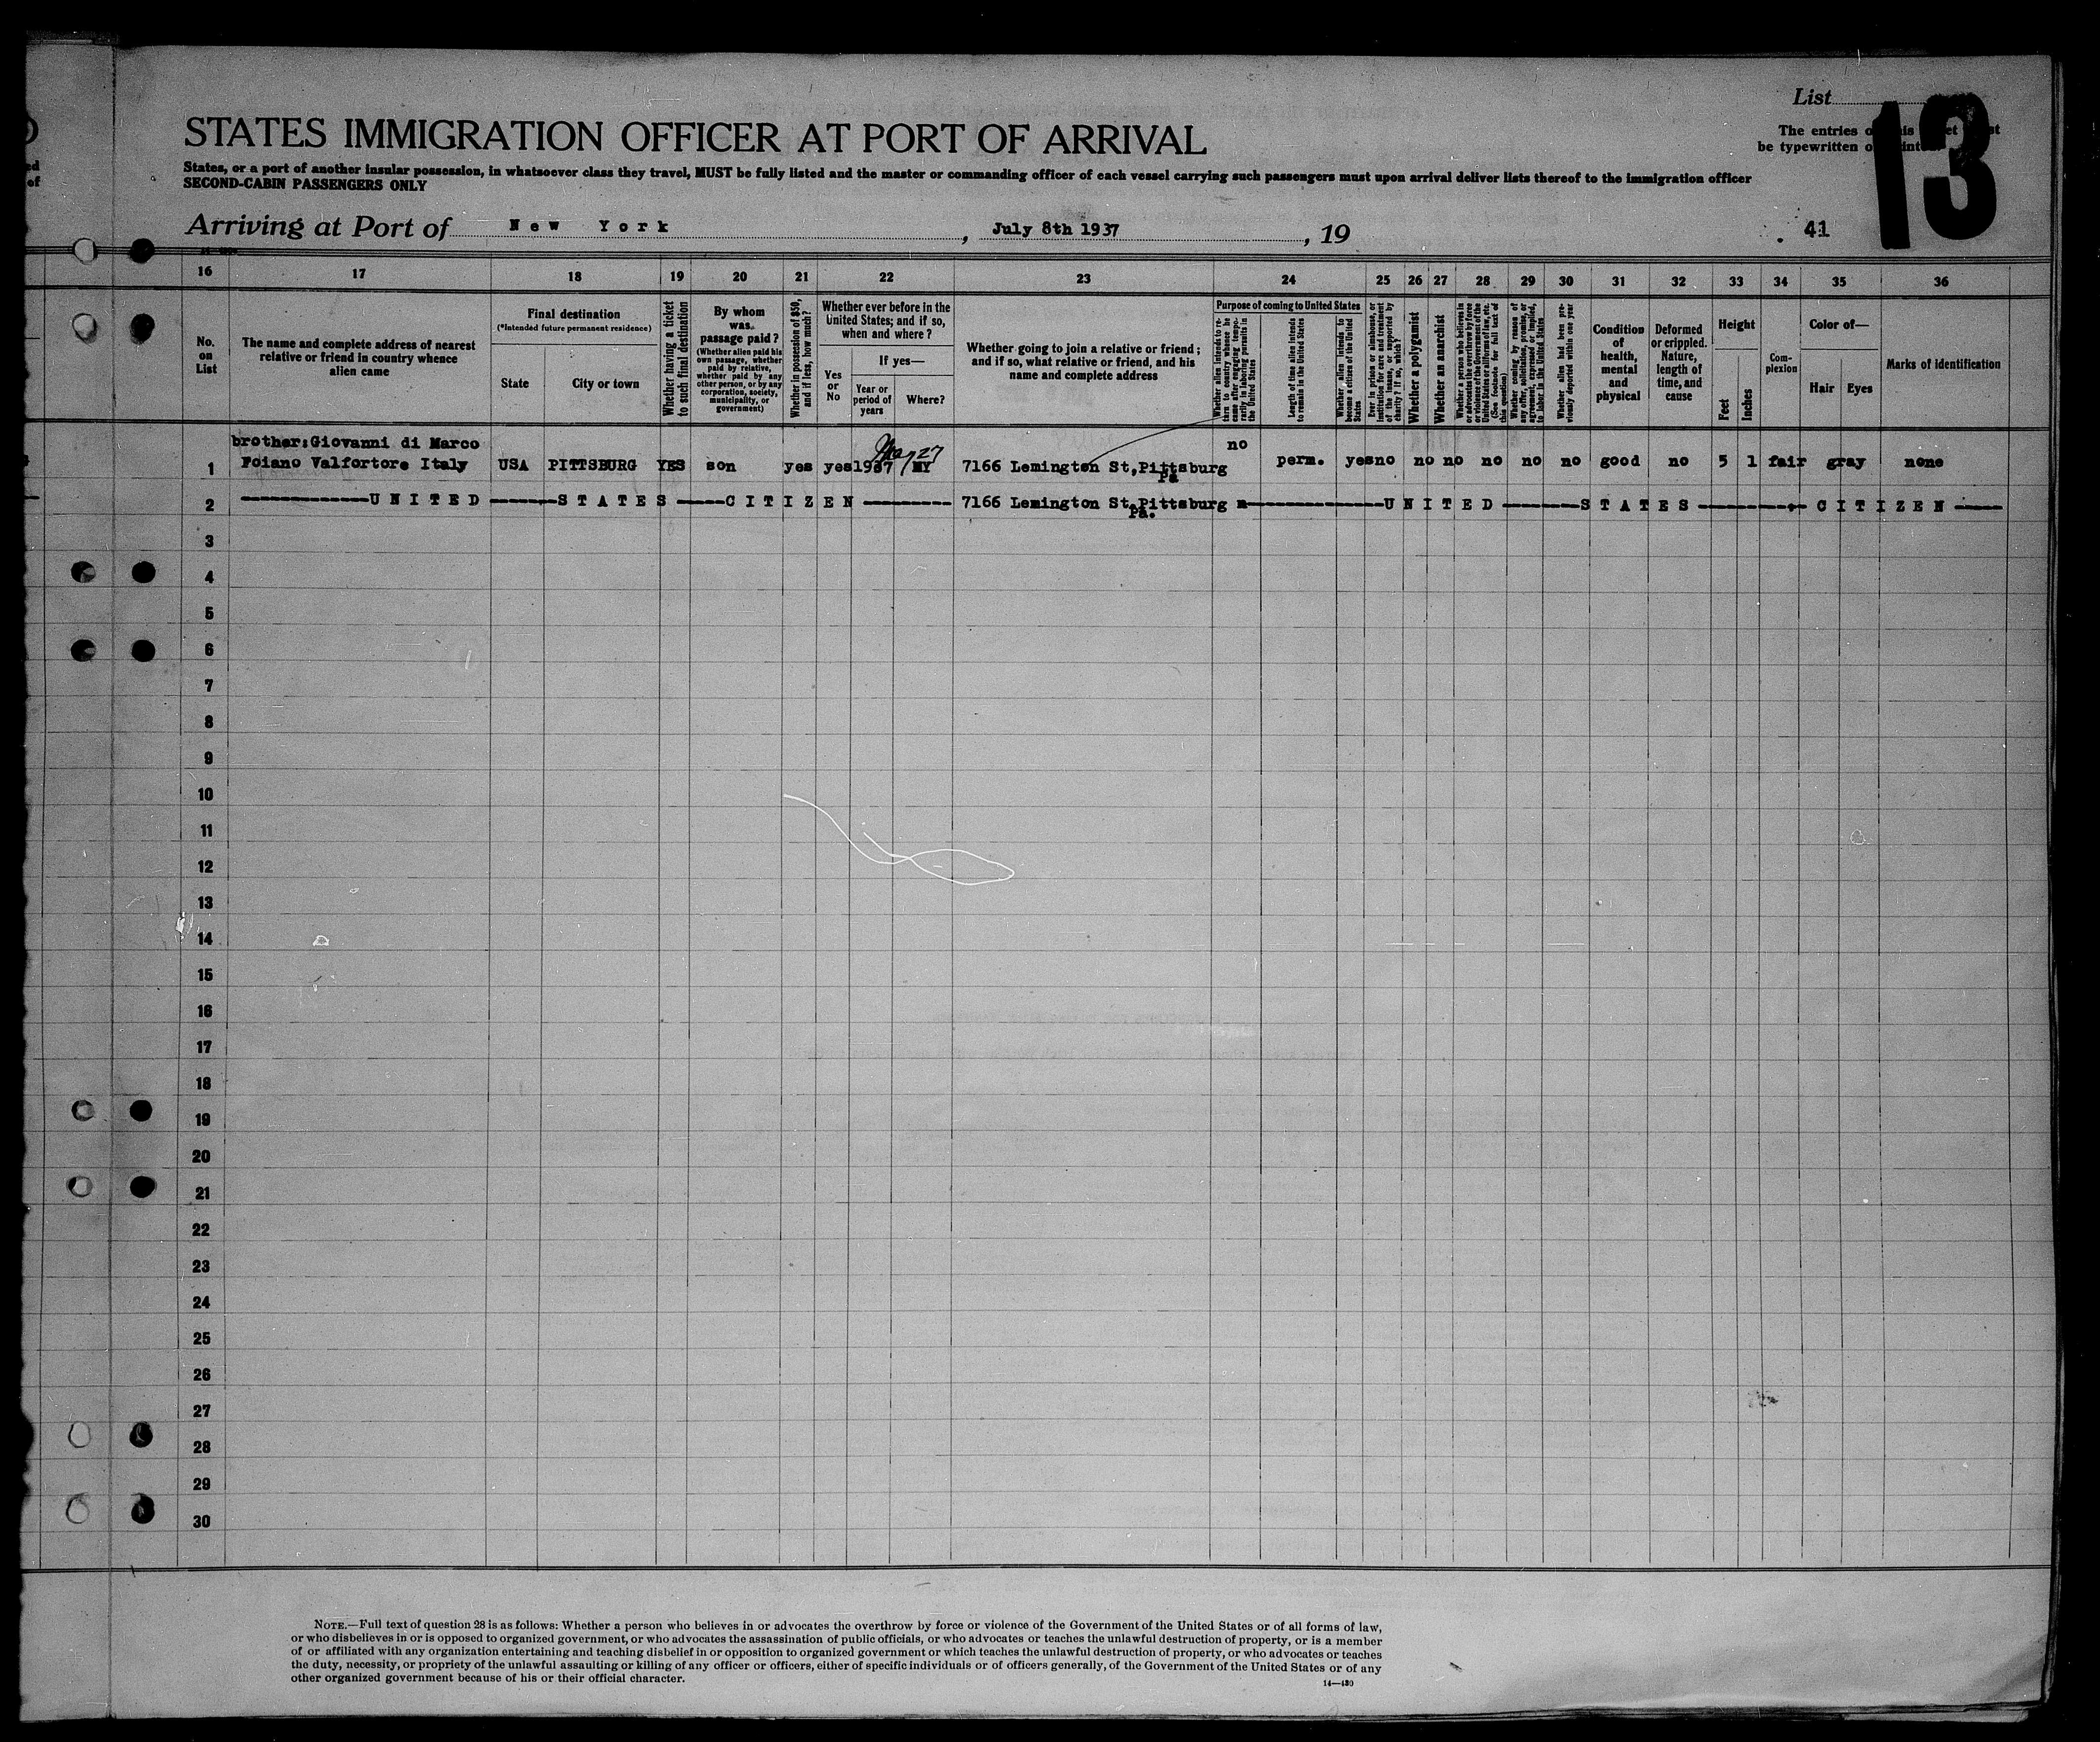 List
13
The entries
be typewritten
STATES IMMIGRATION OFFICER AT PORT OF ARRIVAL
States, or a port of another insular possession, in whatsoever class they travel, MUST be fully listed and the master or commanding officer of each vessel carrying such passengers must upon arrival deliver lists thereof to the immigration officer
SECOND-CABIN PASSENGERS ONLY
Arriving at Port of New York, July 8th 1937, 19
41
16 17 18 19 20 21 22 23 24 25 26 27 28 29 30 31 32 33 34 35 36
No. on List
The name and complete address of nearest relative or friend in country whence alien came
Final destination
(*Intended future permanent residence)
State
City or town
Whether having a ticket to such final destination
By whom was passage paid?
(Whether alien paid his own passage, whether paid by relative, whether paid by any other person, or by any corporation, society, municipality, or government)
Whether in possession of $50, and if less, how much?
Whether ever before in the United States; and if so, when and where?
Yes or No
If yes—
Year or period of years
Where?
Whether going to join a relative or friend; and if so, what relative or friend, and his name and complete address
Purpose of coming to United States
Whether alien intends to return to country whence he came after engaging temporarily in laboring pursuits in the United States
Length of time alien intends to remain in the United States
Whether alien intends to become a citizen of the United States
Ever in prison or almshouse, or institution for care and treatment of the insane, or supported by charity? If so, which?
Whether a polygamist
Whether an anarchist
Whether a person who believes in or advocates the overthrow by force or violence of the Government of the United States or all forms of law, etc. (See footnote for full text of this question)
Whether coming by reason of any offer, solicitation, promise, or agreement, expressed or implied, to labor in the United States
Whether alien had been previously deported within one year
Condition of health, mental and physical
Deformed or crippled. Nature, length of time, and cause
Height
Feet
Inches
Complexion
Color of—
Hair
Eyes
Marks of identification
brother:Giovanni di Marco no
1 Foiano Valfortore Italy USA PITTSBURG YES son yes yes 1937 May 27 NY 7166 Lemington St,Pittsburg perm. yes no no no no no no good no 5 1 fair gray none
Pa
2 UNITED STATES CITIZEN 7166 Lemington St,Pittsburg UNITED STATES CITIZEN
Pa.
3
4
5
6
7
8
9
10
11
12
13
14
15
16
17
18
19
20
21
22
23
24
25
26
27
28
29
30
NOTE.—Full text of question 28 is as follows: Whether a person who believes in or advocates the overthrow by force or violence of the Government of the United States or of all forms of law,
or who disbelieves in or is opposed to organized government, or who advocates the assassination of public officials, or who advocates or teaches the unlawful destruction of property, or is a member
of or affiliated with any organization entertaining and teaching disbelief in or opposition to organized government or which teaches the unlawful destruction of property, or who advocates or teaches
the duty, necessity, or propriety of the unlawful assaulting or killing of any officer or officers, either of specific individuals or of officers generally, of the Government of the United States or of any
other organized government because of his or their official character.
14—430